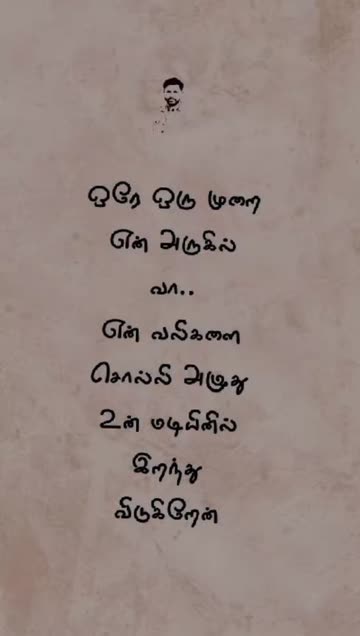 ஒரே ஒரு முறை
என் அருகில்
வா..
என் வலிகளை
சொல்லி அழுது
உன் மடியினில்
இறந்து
விடுகிறேன்